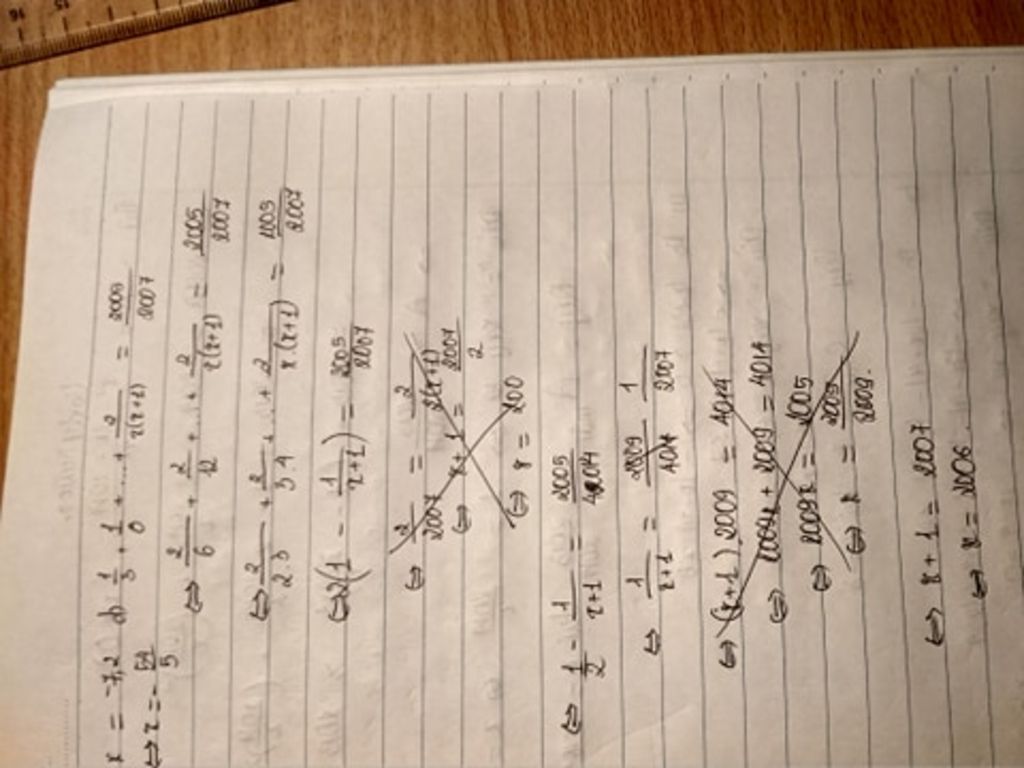 x = -7,2 b 1/3 + 1/6 + ... + 2/x(x+1) = 2005/2007
⇔ x = -
⇔ 2/6 + 2/12 + ... + 2/x(x+1) = 2005/2007
⇔ 2/2.3 + 2/3.4 + ... + 2/x.(x+1) = 2005/2007
⇔ 2(1 - 1/x+1) = 2005/2007
⇔ 2/2007 = 2/2(x+1)
⇔ x+1 = 2007/2
⇔ x = 200
⇔ 1/2 - 1/x+1 = 2005/4014
⇔ 1/x+1 = 2009/4014 1/2007
⇔ (x+1) 2009 = 4014
⇔ 2009x + 2009 = 4014
⇔ 2009x = 2005
⇔ x = 2005/2009.
⇔ x+1 = 2007
⇔ x = 2006